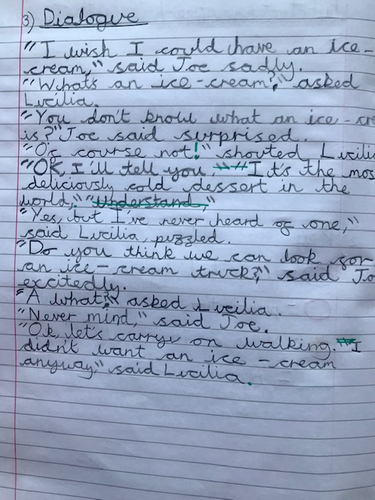 3) Dialogue
"I wish I could have an ice-
cream," said Joe sadly.
"What's an ice-cream?" asked
Lucilia.
"You don't know what an ice-cre
is?" Joe said surprised.
"Of course not!" shouted Lucili
"OK, I'll tell you. It's the mos
deliciously cold dessert in the
world," "Understand,"
"Yes, but I've never heard of one,"
said Lucilia, puzzled.
"Do you think we can look for
an ice-cream truck?" said Jo
excitedly.
"A what?" asked Lucilia.
"Never mind," said Joe.
"Ok let's carry on walking. I
didn't want an ice-cream
anyway" said Lucilia.